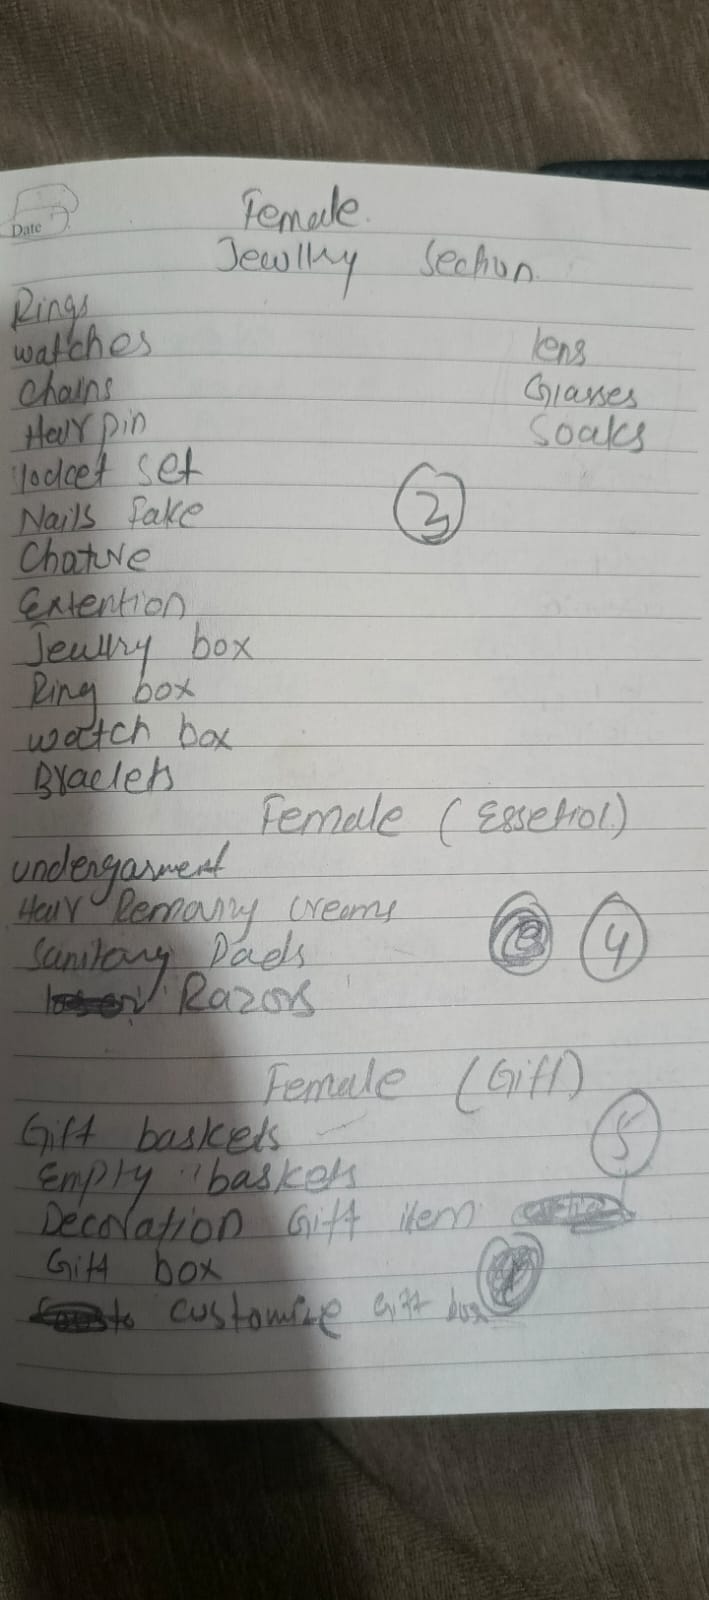 Date
Female.
Jewllry Section
Rings
watches
lens
Chains
Glasses
Hair pin
Soaks
locket set
3
Nails fake
Extention
Jewllry box
Ring box
watch box
Braclets
Female (Essetiol)
undergarment
Hair Removing creams
4
Sanitary Pads
Razors
Female (Gift)
Gift baskets
5
Empty baskets
Decoration Gift item
Gift box
customize Gift box